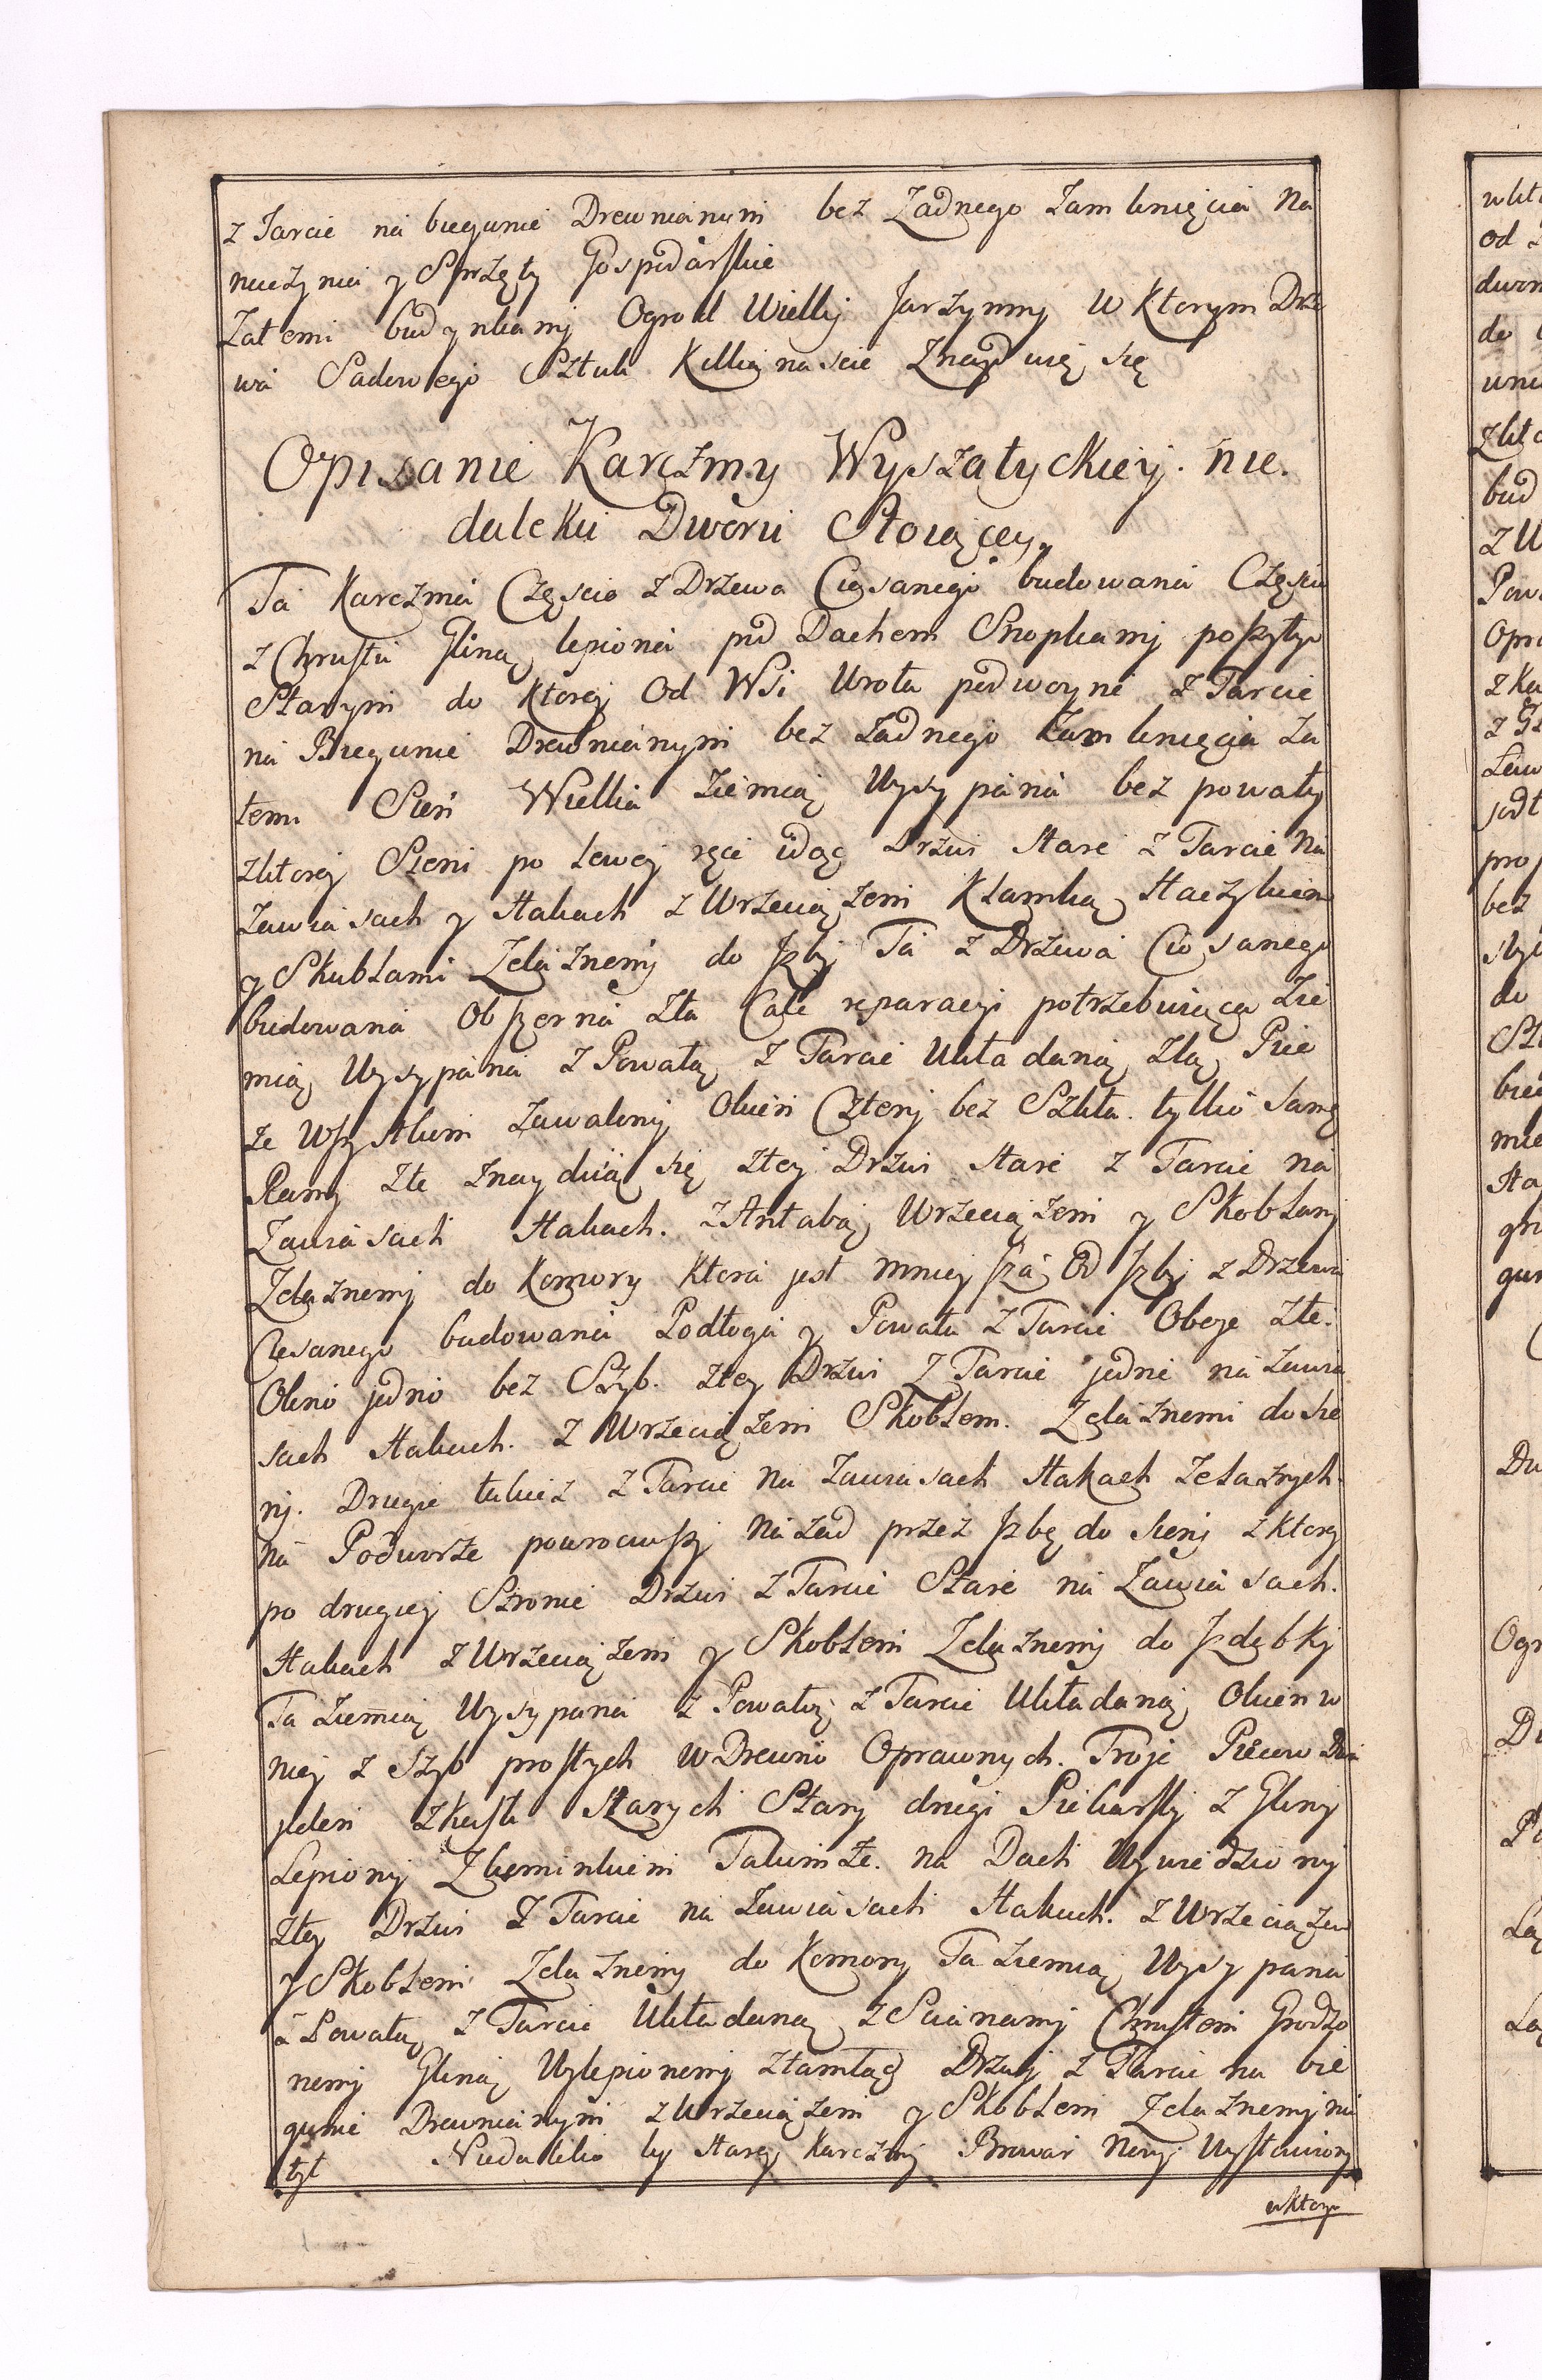 z Tarcic na biegunie Drewnianym bez Zadnego Zamknięcia Na
naczynia y Sprzęty Gospodarskie
Zatemi budynkamj Ogrod Wielkij Jarzynny w Ktorym Drze
wa Sadowego Sztuk Kilkanascie Znayduię się
Opisanie Karczmy Wyszatyckieij. nie.
daleku Dworu Stoiącey.
Ta Karczma Częscio z Drzewa Ciosanego budowana Częscio
z Chrustu Gliną lepiona pod Dachem Snopkamj poszytym
Starym do Ktorej Od WSi Wrota podwoyne z Tarcic
na Biegunie Drewnianym bez Zadnego Zamknięcia Za
temi Sień Wielka Ziemią Wysypana bez powały
zktorej Sieni po Lewej ręce idąc Drzwi Stare z Tarcic Na
Zawiasach y Hakach z Wrzeciążem Klamką Haczykiem
y Skublami Zelaznemj do Jzbj Ta z Drzewa Ciosanego
budowana Obszerna Zła Cale reparacyi potrzebuiąca Zie
mią Wysypana z Powałą z Tarcic Układaną Złą, Piec
ze Wszystkim Zawalony Okien Czterj bez Szkła tylko Samę
Ramy złe znayduią się ztey Drzwi stare z Tarcic na
Zawiasach Hakach. z Antabą, Wrzeciążem y Skoblamj
Zelaznemj do Komory Ktora jest mniejszą Od Jzbj z Drzewa
Ciesanego budowana Podłoga y Powała z Tarcic Oboje złe.
Okno jedno bez Szyb. ztey Drzwi z Tarcic jedne na Zawia
sach Hakach. z Wrzeciążem Skoblem. Zelaznemi do Sie
nj. Drugie takież z Tarcic Na Zawiasach Hakach Zelaznych.
na Podworze powrociwszy Na zad przez Jzbę do Sieni z ktorej
po drugiej Stronie Drzwi z Tarcic Stare na Zawiasach.
Hakach z Wrzeciążem y Skoblem Zelaznemj do Jzdebkj
Ta Ziemią Wysypana z Powałą z Tarcic Układaną Okien w
niej z Szyb prostych w Drewno Oprawnych. Troje Piecow Dwa
jeden z Starych Stary drugi Piekarskj z Gliny
Lepiony Zkominkiem Takimże. na Dach Wywiedzionj
ztey Drzwi z Tarcic na Zawiasach Hakach. z Wrzeciążem
y Skoblem Zelaznemj do Komory Ta Ziemią Wysypana
a Powałą z Tarcic Układaną z Scianamj Chrustem Grodzo
nemj Gliną Wylepionemj ztamtąd Drzwj z Tarcic na bie
gunie Drewnianym z Wrzeciążem y Skoblem Zelaznemj na
tył Niedaleko ty Starej Karczmj Browar Nowj Wystawiony
wktory